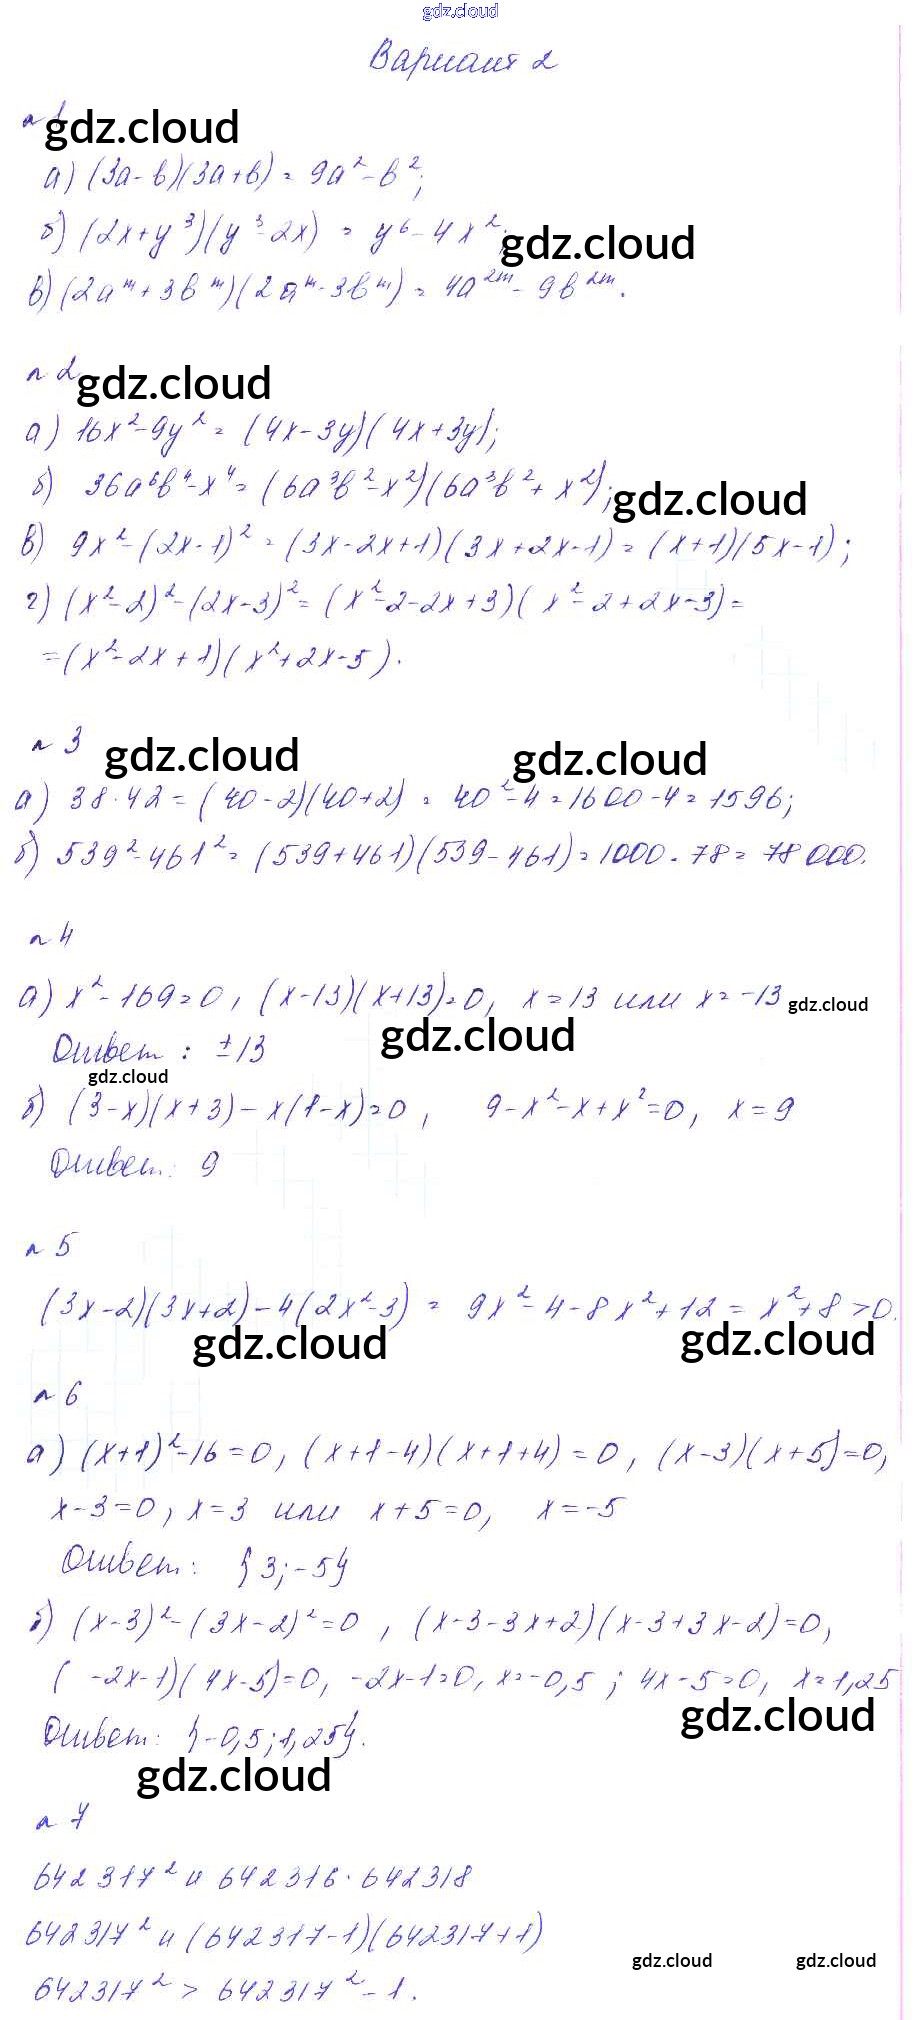 gdz.cloud
Вариант 2
n 1 gdz.cloud
а) (3a-b)(3a+b) = 9a²-b²;
б) (2x+y³)(y³-2x) = y⁶-4x²; gdz.cloud
в) (2aᵐ+3bᵐ)(2aᵐ-3bᵐ) = 4a²ᵐ-9b²ᵐ.
n 2 gdz.cloud
а) 16x²-9y² = (4x-3y)(4x+3y);
б) 36a⁶b⁴-x⁴ = (6a³b²-x²)(6a³b²+x²); gdz.cloud
в) 9x²-(2x-1)² = (3x-2x+1)(3x+2x-1) = (x+1)(5x-1);
г) (x²-2)²-(2x-3)² = (x²-2-2x+3)(x²-2+2x-3) =
= (x²-2x+1)(x²+2x-5).
n 3 gdz.cloud gdz.cloud
а) 38·42 = (40-2)(40+2) = 40²-4 = 1600-4 = 1596;
б) 539²-461² = (539+461)(539-461) = 1000·78 = 78 000.
n 4
а) x²-169=0, (x-13)(x+13)=0, x=13 или x=-13 gdz.cloud
Ответ: ±13 gdz.cloud
gdz.cloud
б) (3-x)(x+3)-x(1-x)=0, 9-x²-x+x²=0, x=9
Ответ: 9
n 5
(3x-2)(3x+2)-4(2x²-3) = 9x²-4-8x²+12 = x²+8>0.
gdz.cloud gdz.cloud
n 6
а) (x+1)²-16=0, (x+1-4)(x+1+4)=0, (x-3)(x+5)=0,
x-3=0, x=3 или x+5=0, x=-5
Ответ: {3;-5}
б) (x-3)²-(3x-2)²=0, (x-3-3x+2)(x-3+3x-2)=0,
(-2x-1)(4x-5)=0, -2x-1=0, x=-0,5; 4x-5=0, x=1,25
gdz.cloud
Ответ: {-0,5;1,25}.
gdz.cloud
n 7
642317² и 642316·642318
642317² и (642317-1)(642317+1)
gdz.cloud gdz.cloud
642317² > 642317²-1.